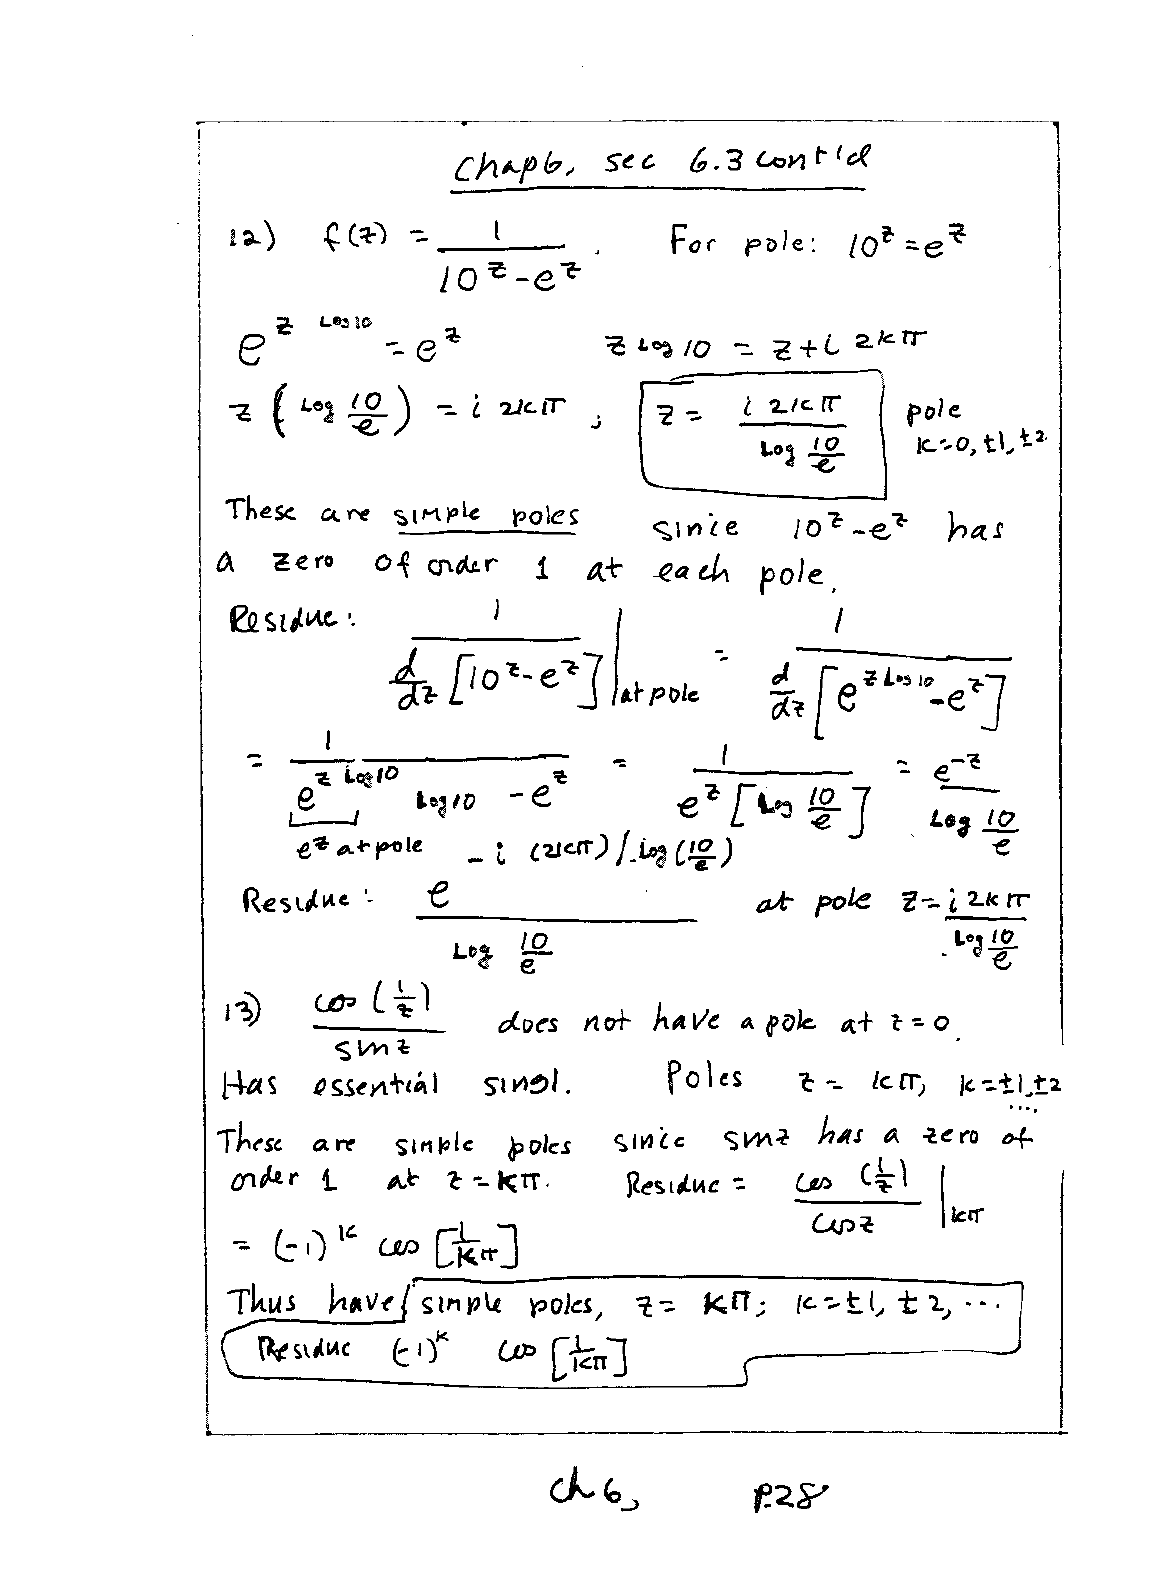 Chap 6, sec 6.3 cont'd
12) f(z) = 1/(10^z - e^z). For pole: 10^z = e^z
e^(z Log 10) = e^z    z Log 10 = z + i 2kπ
z (Log 10/e) = i 2kπ ; z = i 2kπ / Log 10/e    pole k=0, ±1, ±2.
These are simple poles since 10^z - e^z has
a zero of order 1 at each pole.
Residue: 1 / (d/dz [10^z - e^z]) | at pole = 1 / (d/dz [e^(z Log 10) - e^z])
= 1 / (e^(z Log 10) Log 10 - e^z) = 1 / (e^z [Log 10/e]) = e^-z / Log 10/e
e^z at pole
Residue: e^(-i (2kπ)/Log(10/e)) / Log 10/e    at pole z = i 2kπ / Log 10/e
13) cos (1/z) / sin z does not have a pole at z = 0.
Has essential singl. Poles z = kπ, k = ±1, ±2 ....
These are simple poles since sin z has a zero of
order 1 at z = kπ. Residue = cos (1/z) / cos z | kπ
= (-1)^k cos [1/kπ]
Thus have simple poles, z = kπ; k = ±1, ±2, ...
Residue (-1)^k cos [1/kπ]
ch 6, p.28